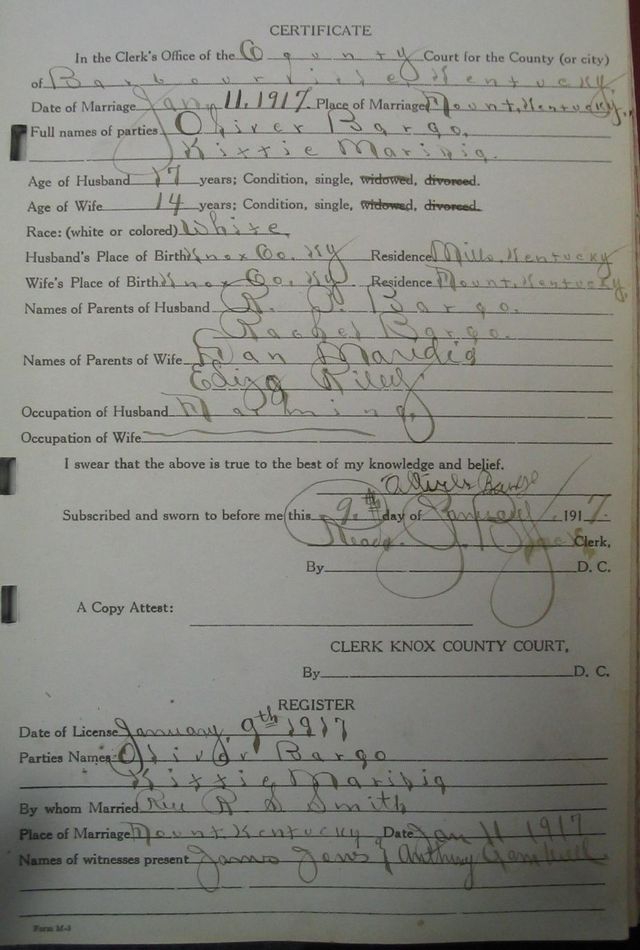 CERTIFICATE
In the Clerk's Office of the County Court for the County (or city)
of Barbourville Kentucky,
Date of Marriage Jany 11, 1917. Place of Marriage Mount, Kentucky,
Full names of parties Oliver Bargo,
Kittie
Age of Husband 17 years; Condition, single, widowed, divorced.
Age of Wife 14 years; Condition, single, widowed, divorced.
Race: (white or colored) White,
Husband's Place of Birth Knox Co. Ky Residence Mills, Kentucky
Wife's Place of Birth Knox Co, Ky. Residence Mount, Kentucky,
Names of Parents of Husband Bargo.
Rachel Bargo.
Names of Parents of Wife Dan
Riley
Occupation of Husband Farming,
Occupation of Wife
I swear that the above is true to the best of my knowledge and belief.
Bargo
Subscribed and sworn to before me this 9th day of January, 1917.
Read Clerk,
By D. C.
A Copy Attest:
CLERK KNOX COUNTY COURT,
By D. C.
REGISTER
Date of License January, 9th 1917
Parties Names Oliver Bargo
Kittie
By whom Married Rev R S Smith
Place of Marriage Mount, Kentucky Date Jan 11 1917
Names of witnesses present James Jones & Anthony
Form M-1